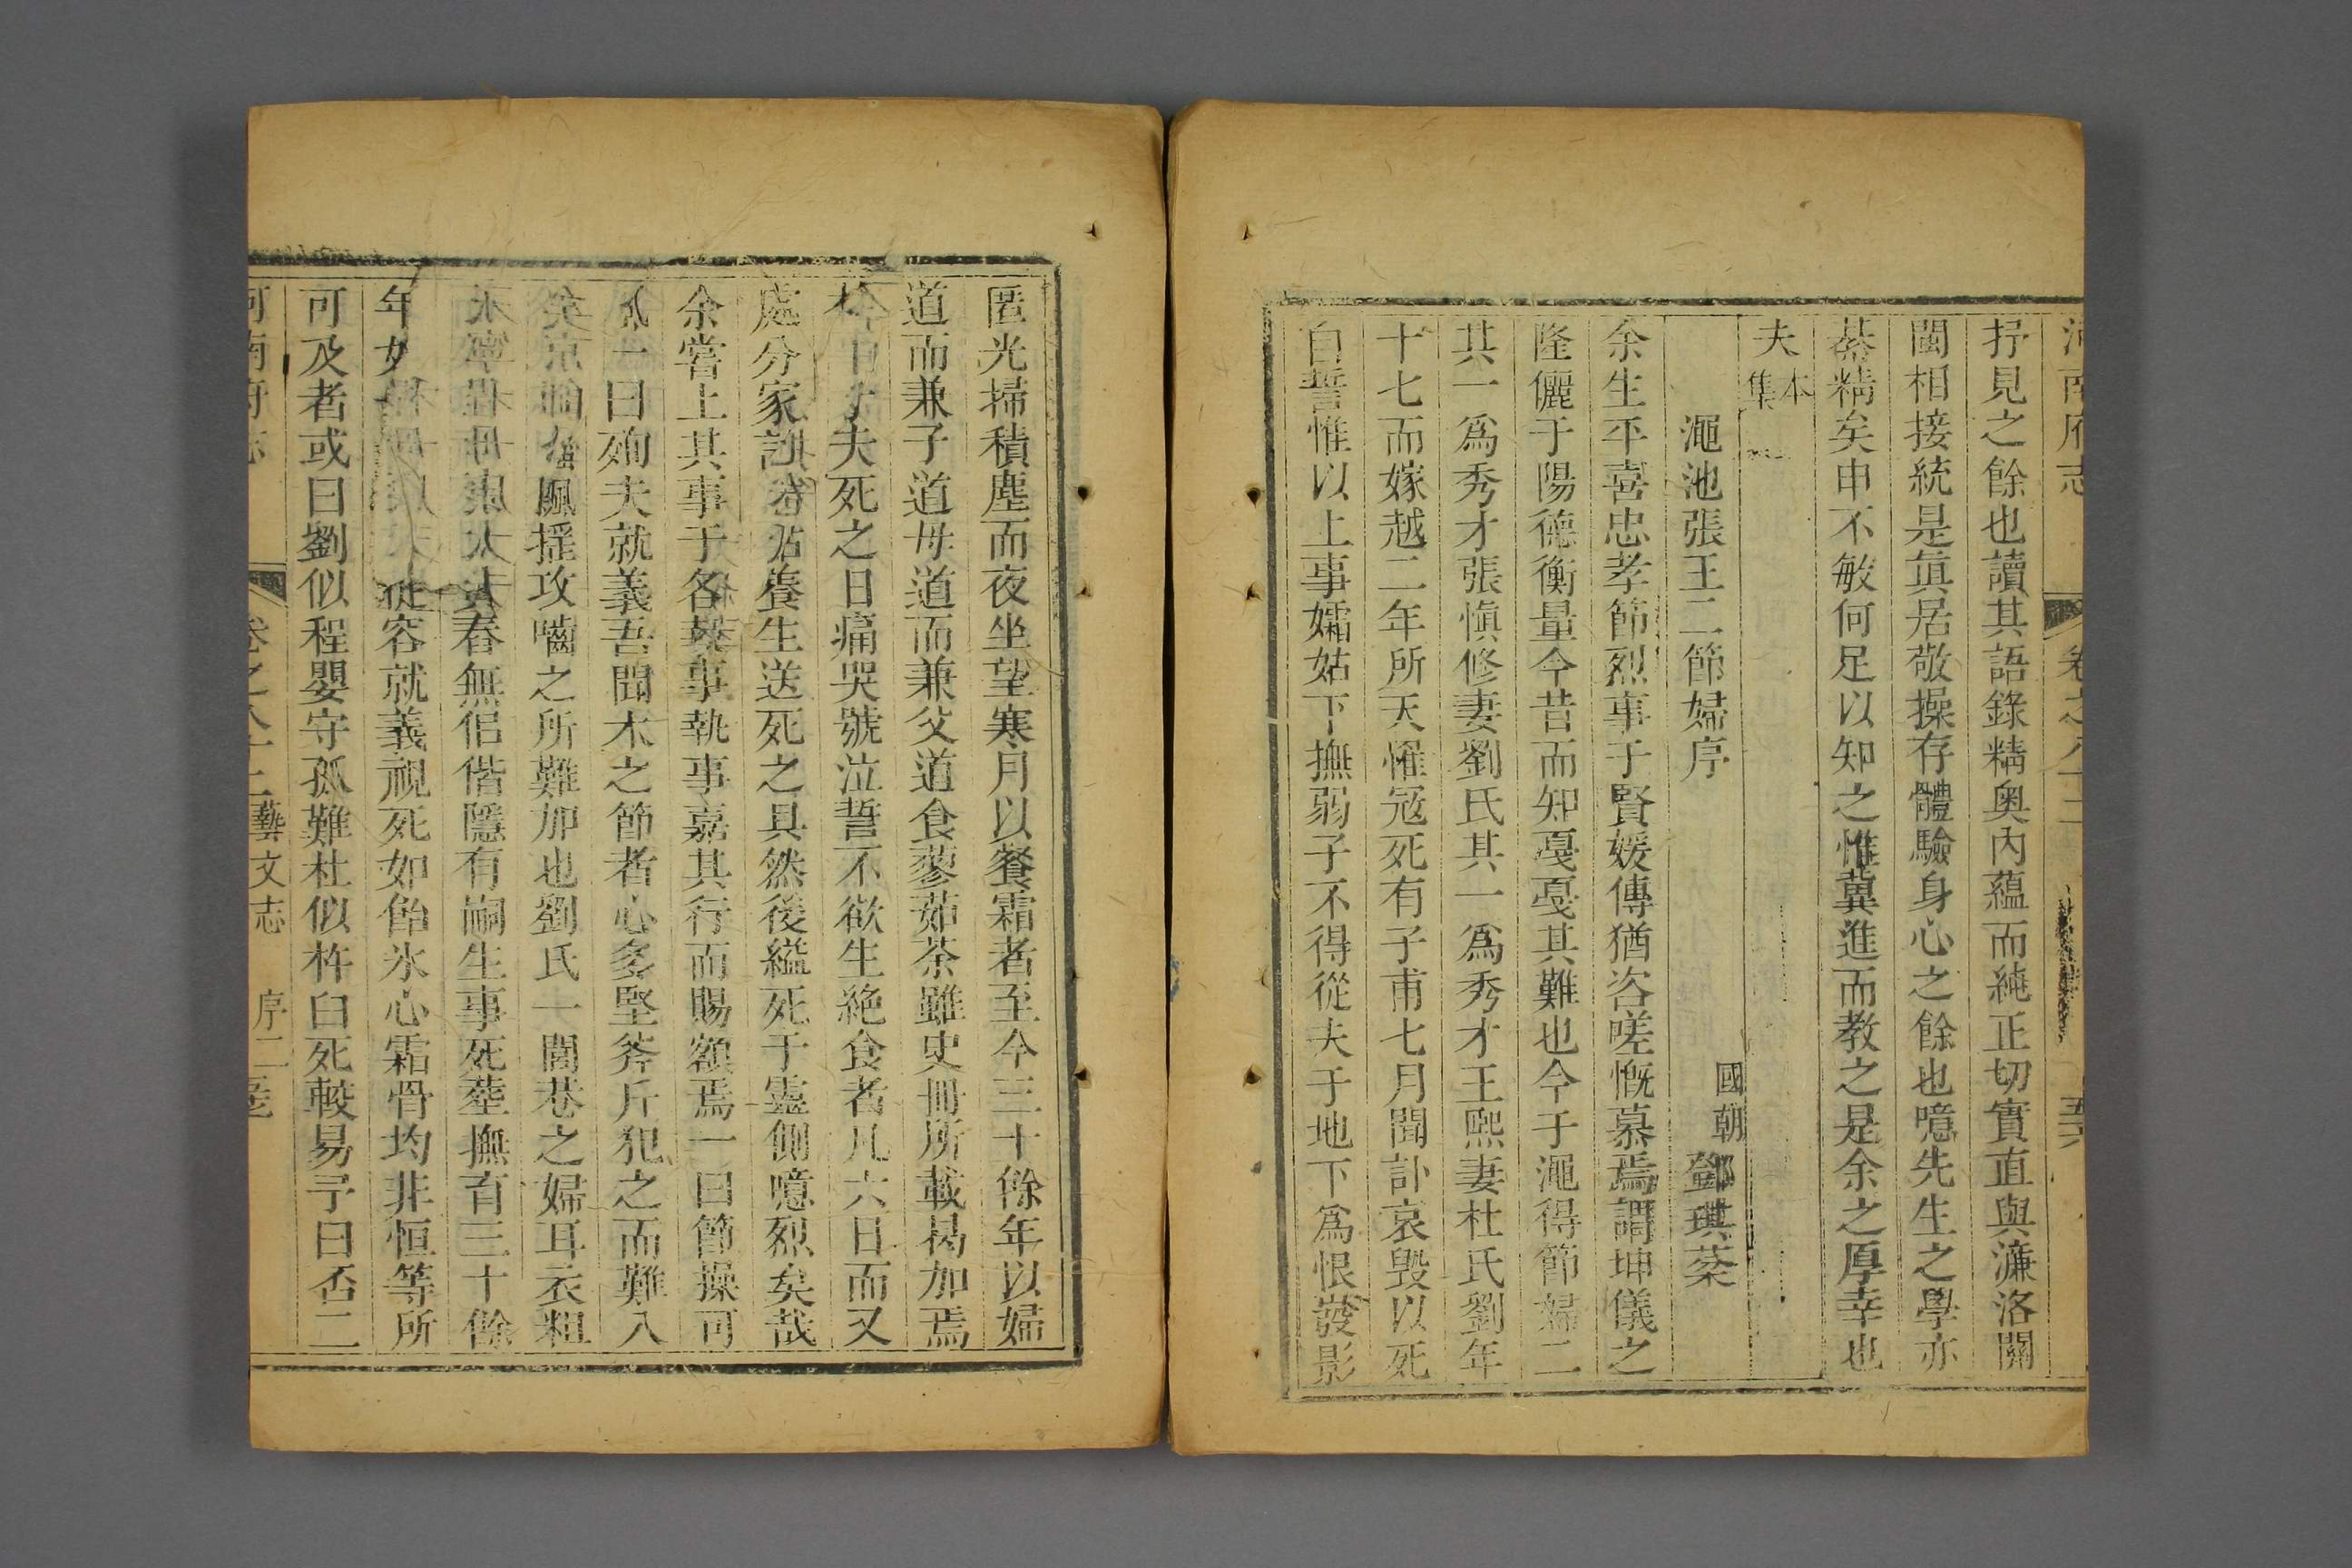 河南府志 卷之八十二 五六
抒見之餘也讀其語錄精奧內蘊而純正切實直與濂洛關
閩相接統是眞居敬操存體驗身心之餘也噫先生之學亦
綦精矣申不敏何足以知之惟冀進而教之是余之厚幸也
夫 本集
澠池張王二節婦序 國朝 鄧琪棻
余生平喜忠孝節烈事于賢媛傳猶咨嗟慨慕焉謂坤儀之
隆儷于陽德衡量今昔而知戞戞其難也今于澠得節婦二
其一爲秀才張愼修妻劉氏其一爲秀才王熙妻杜氏劉年
十七而嫁越二年所天罹冦死有子甫七月聞訃哀毁以死
自誓惟以上事孀姑下撫弱子不得從夫于地下爲恨發影
匿光掃積塵而夜坐望寒月以餐霜者至今三十餘年以婦
道而兼子道母道而兼父道食蓼茹茶雖史冊所載曷加焉
子夫死之日痛哭號泣誓不欲生絶食者凡六日而又
處分家 養生送死之具然後縊死于靈側噫烈矣哉
余嘗上其事于各 事執事嘉其行而賜額焉一曰節操可
一曰殉夫就義吾聞木之節者心多堅斧斤犯之而難入
颿搖攻嚙之所難加也劉氏一閭巷之婦耳衣粗
春無侣偕隱有嗣生事死塟撫育三十餘
年 從容就義視死如飴氷心霜骨均非恒等所
可及者或曰劉似程嬰守孤難杜似杵臼死較易予曰否二
河南府志 卷之八十二 藝文志 序二